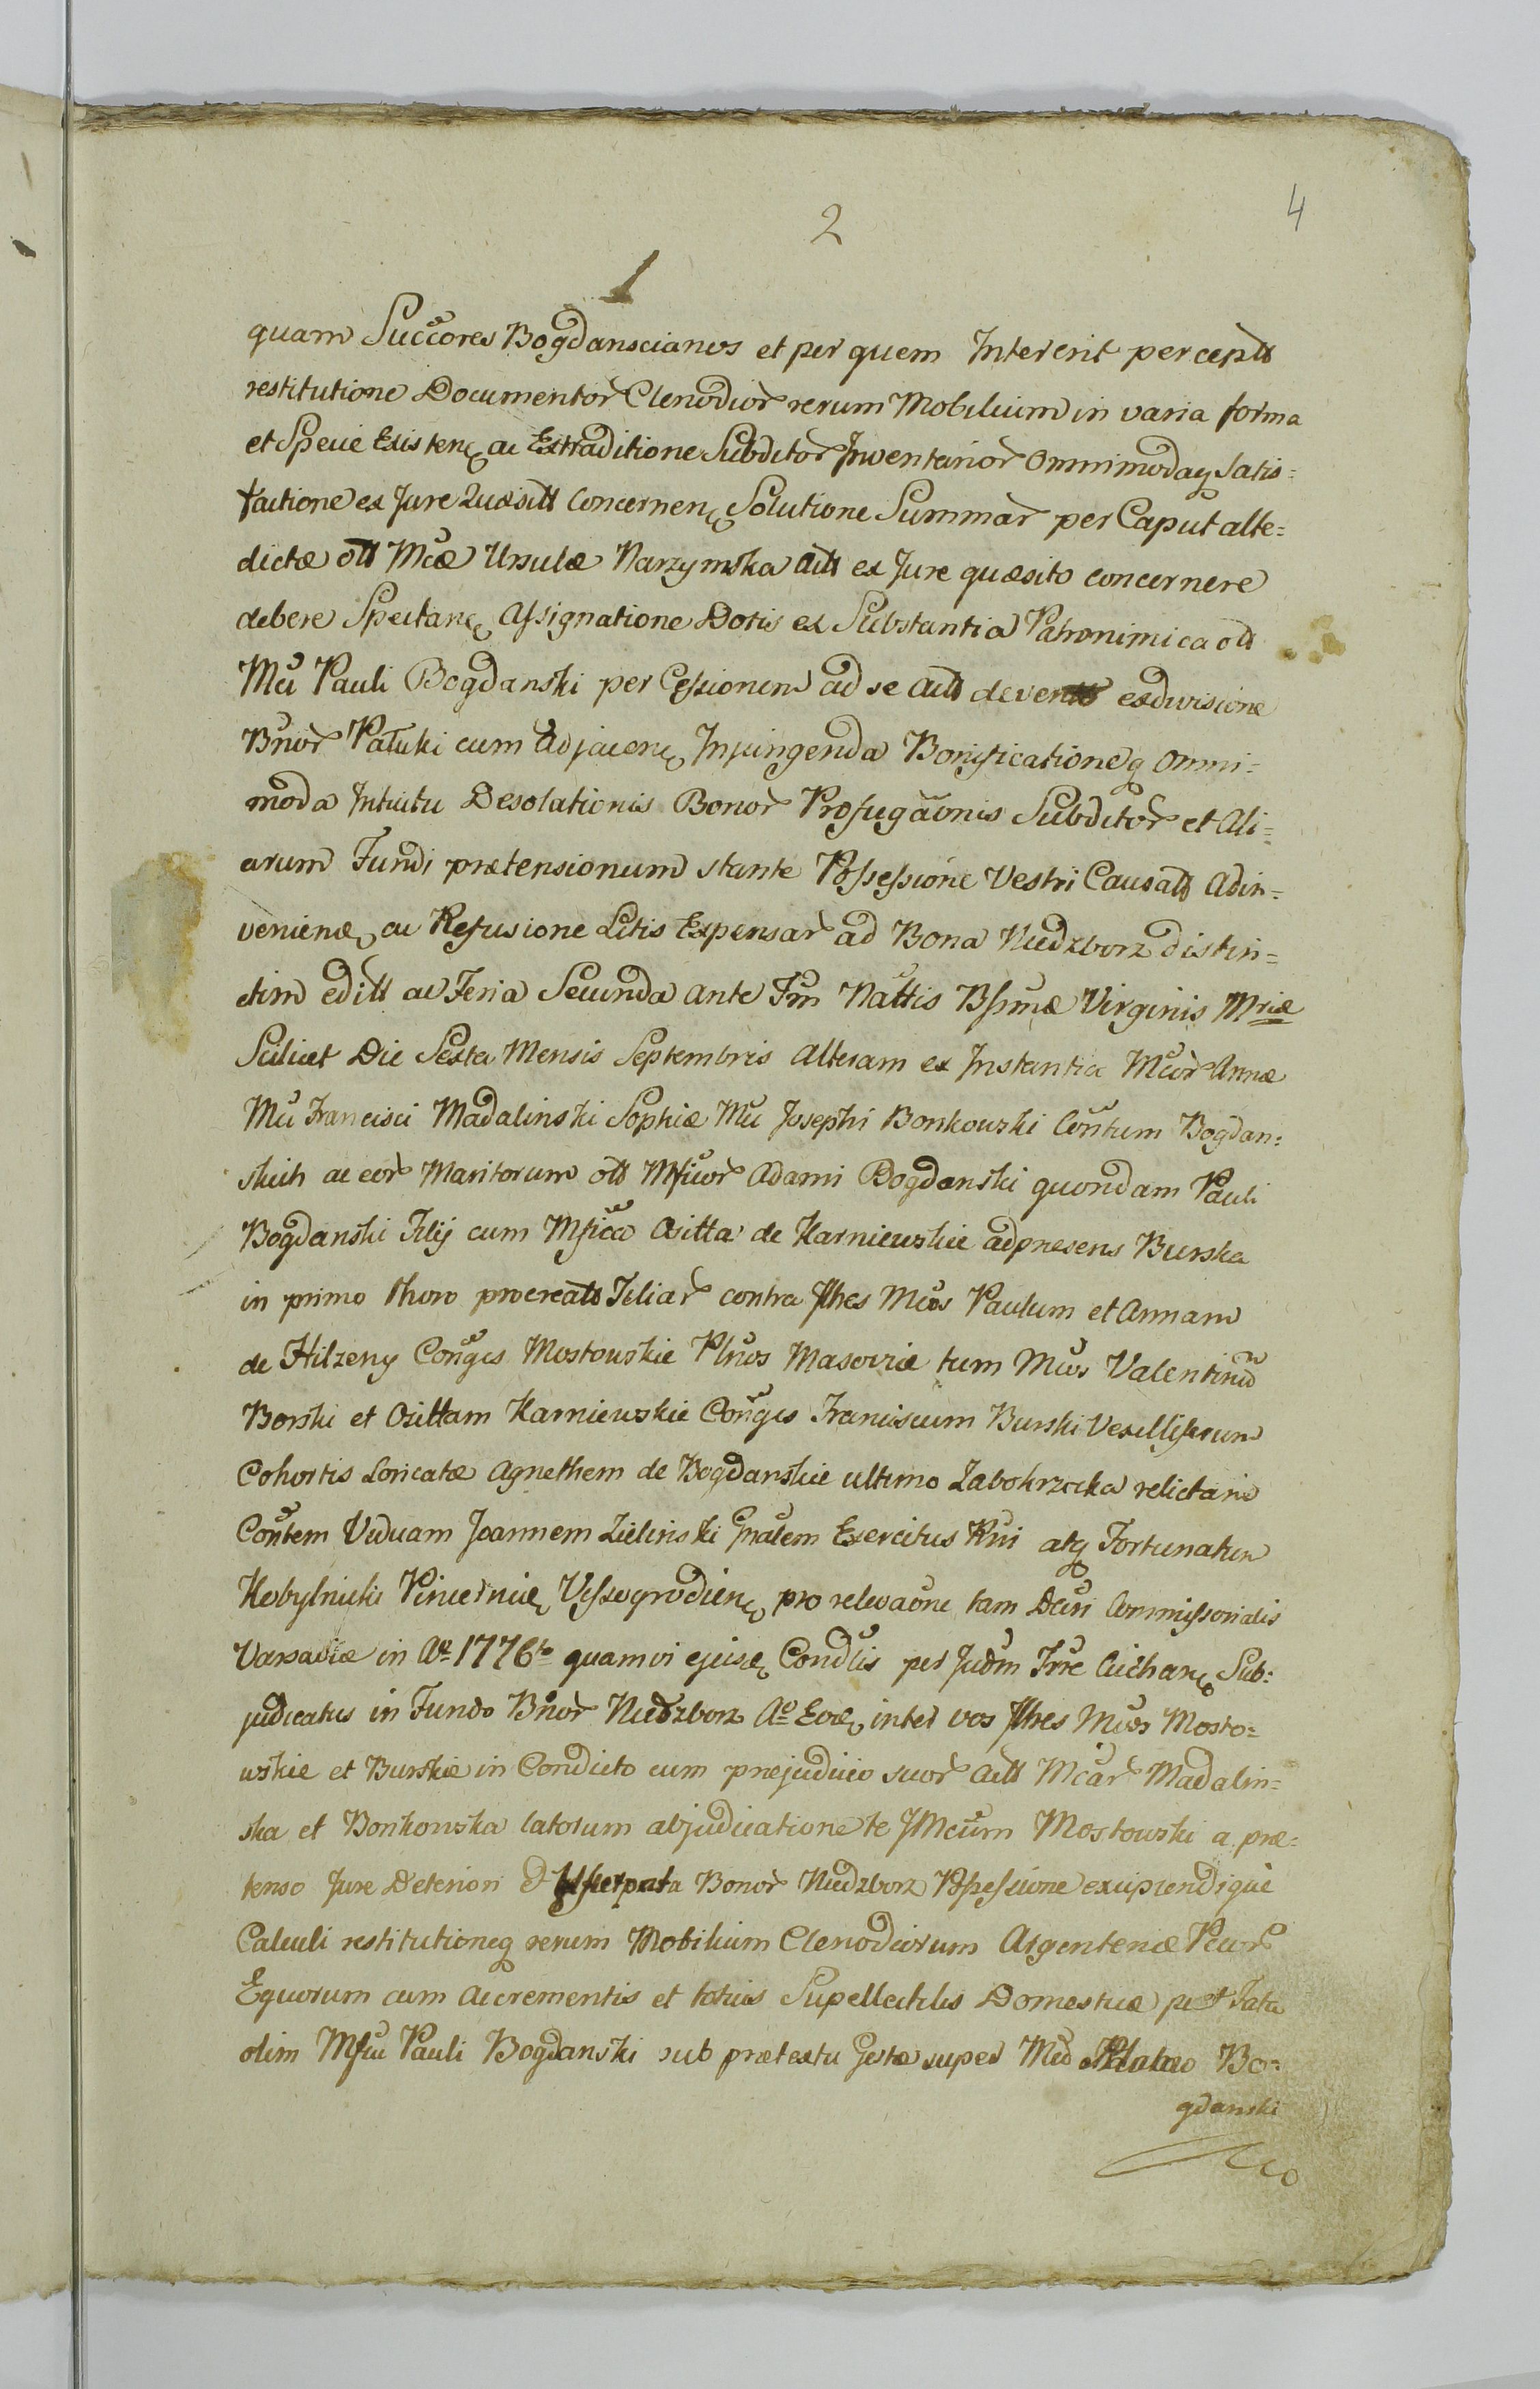 4
2
1
quam Succores Bogdanscianos et per quem Intererit percepts
restitutione Documentor Clenodior rerum Mobilium in varia forma
et Specie Existen ac Extraditione Subditor Inventarior Omnimodaq Satis=
factione ex Jure Quæsitt Concernen Solutione Summar per Caput alte=
dictæ ott Mcæ Ursulæ Narzymska Actt ex Jure quæsito concernere
debere Spectan Assignatione Dotis ex Substantia Patronimica ott
Mci Pauli Bogdanski per Cessionem ad se Actt exdivisione
Bnor Patuki cum Adjacen Injungenda Bonificationeq Omni=
moda Intuitu Desolationis Bonor Profugaonis Subditor et Ali=
arum Fundi prætensionum stante Possessione Vestri Causatt Adin=
venien ac Refusione Litis Expensar ad Bona Niedzborz distin=
ctim editt ac Feria Secunda ante Fm Nattis Bssmæ Virginis Mriæ
Scilicet Die Sexta Mensis Septembris Alteram ex Instantia Mcar Annæ
Mci Francisci Madalinski Sophiæ Mci Josephi Bonkowski Contum Bogdan=
skich ac eor Maritorum ott Mficor Adami Bogdanski quondam Pauli
Bogdanski Filij cum Mfica Ositta de Karniewskie adpresens Burska
in primo thoro procreatt Filiar contra Ilhes Mcos Paulum et Annam
de Hilzeny Conges Mostowskie Pltnos Masoviæ tum Mcos Valentinum
Borski et Osittam Karniewskie Conges Franciscum Burski Vexilliferum
Cohortis Loricatæ Agnethem de Bogdanskie ultimo Zabokrzecka relictam
Contem Viduam Joannem Zielinski Gnalem Exercitus Rni atq Fortunatum
Kobylnicki Pincernic Vissogrodien pro relevaone tam Dcti Commissorialis
Varsaviæ in Ao 1776to quam vi ejusd Condtis per Judm Trre Ciechan Sub=
judicatus in Fundo Bnor Niedzborz Ao Eod inter vos Ilhes Mcos Mosto=
wskie et Burskie in Condicto cum præjudicio suor Actt Mcar Madalin=
ska et Bonkowska latorum abjudicatione te JMcum Mostowski a præ=
tenso Jure Deteriori Bonor Niedzborz Possessione excipiendique
Calculi restitutioneq rerum Mobilium Clenodiorum Argenteriæ Pecor
Equorum cum Accrementis et totius Supellectilis Domesticæ post Fata
olim Mfici Pauli Bogdanski sub prætextu Gestæ super Mco Bo=
gdanski